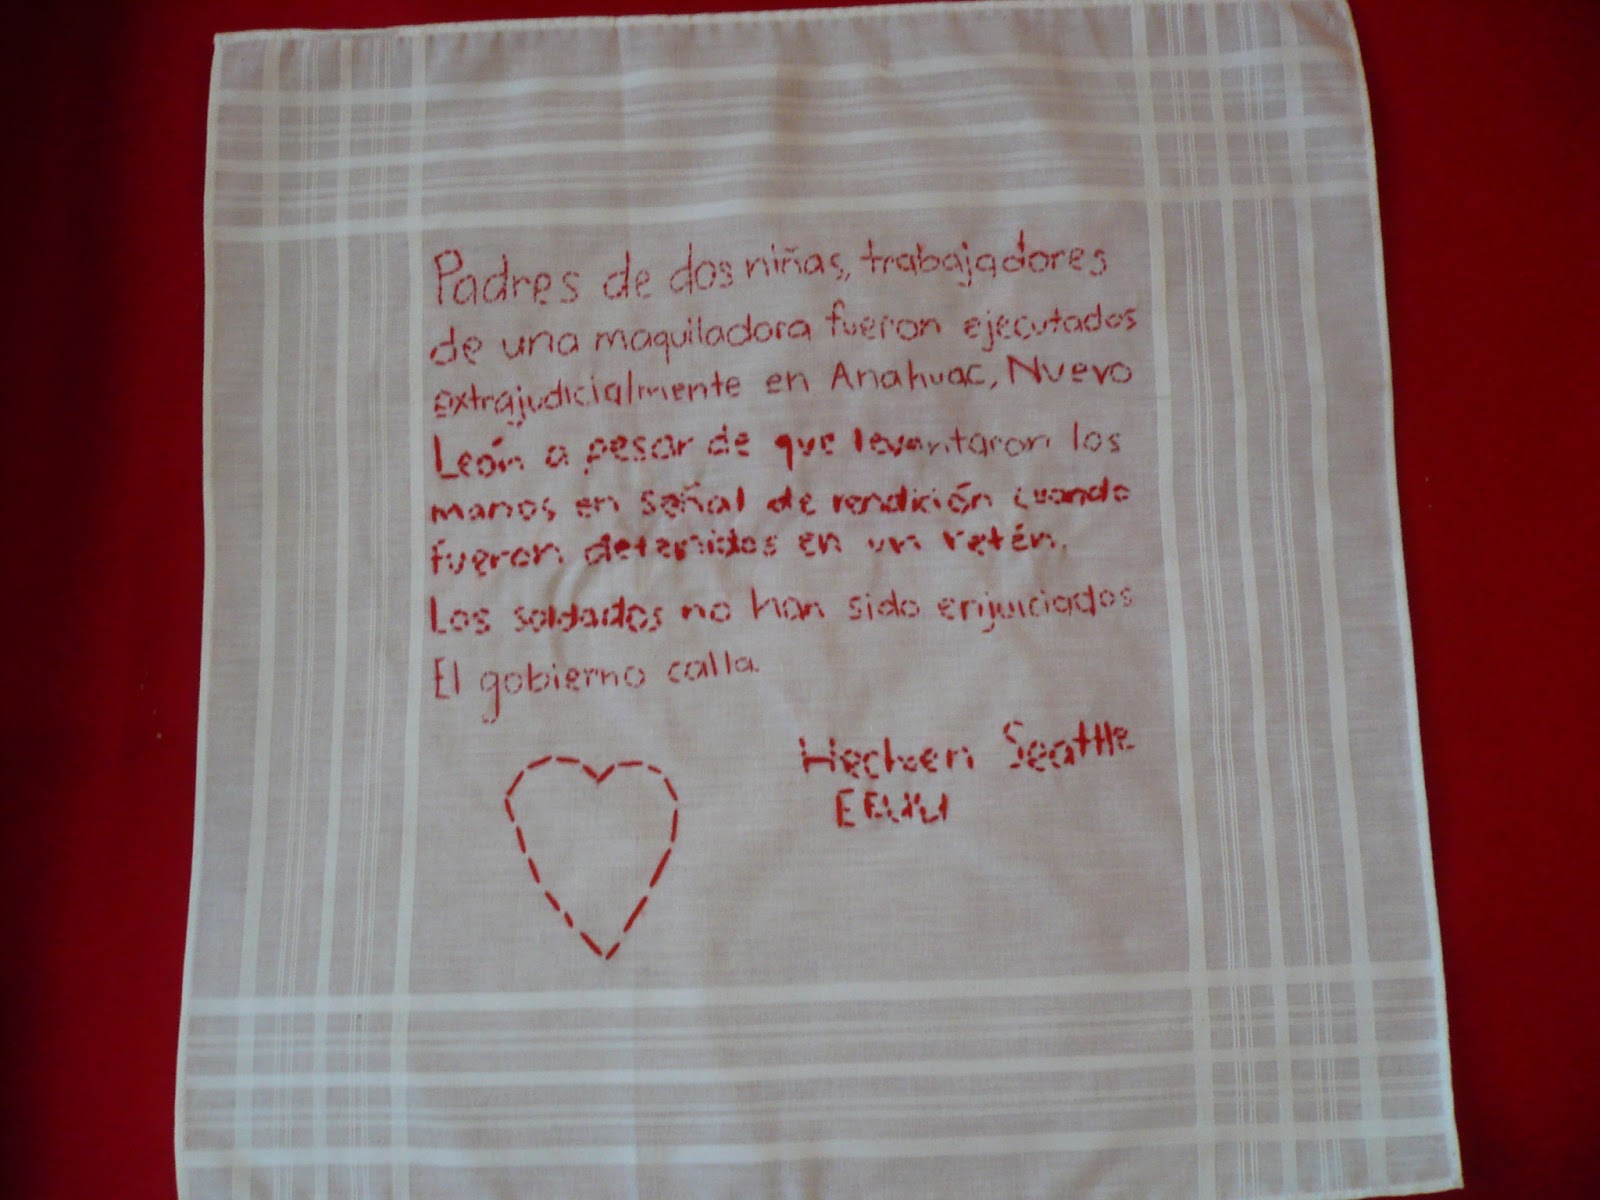 Padres de dos niñas, trabajadores
de una maquiladora fueron ejecutados
extrajudicialmente en Anahuac, Nuevo
León a pesar de que levantaron las
manos en señal de rendición cuando
fueron detenidos en un retén.
Los soldados no han sido enjuiciados
El gobierno calla.
Seattle
EEUU